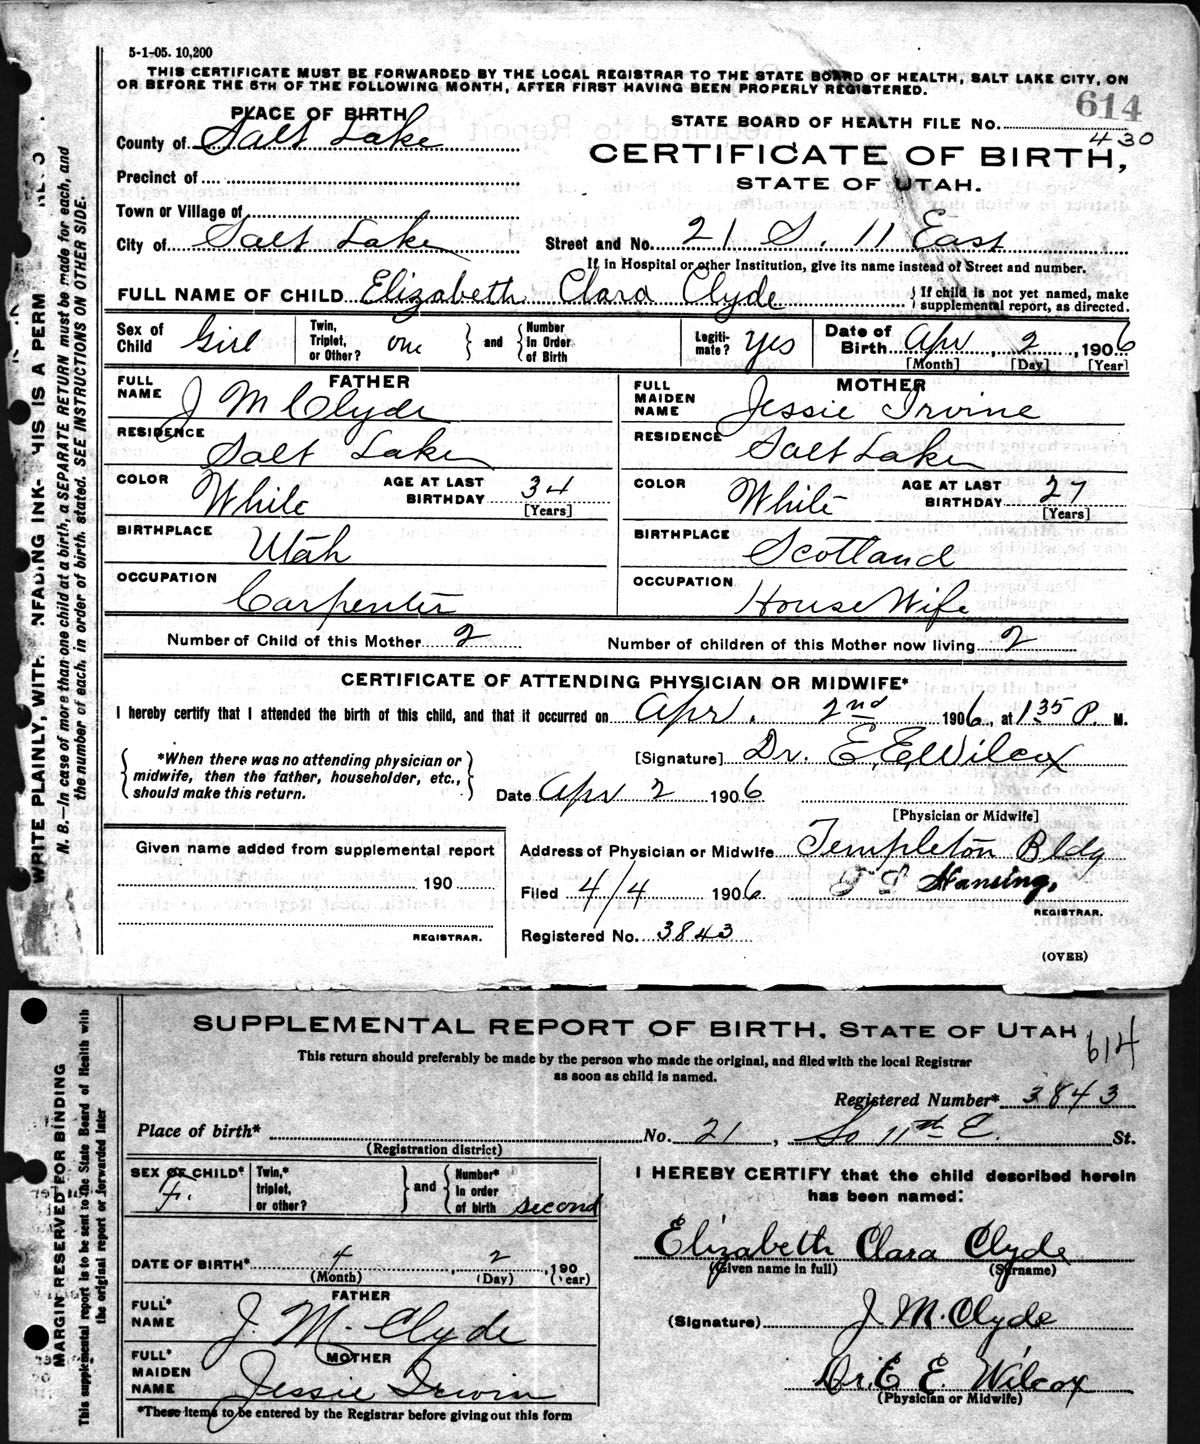 5-1-05. 10,200
THIS CERTIFICATE MUST BE FORWARDED BY THE LOCAL REGISTRAR TO THE STATE BOARD OF HEALTH, SALT LAKE CITY, ON
OR BEFORE THE 5TH OF THE FOLLOWING MONTH, AFTER FIRST HAVING BEEN PROPERLY REGISTERED.
614
PLACE OF BIRTH
STATE BOARD OF HEALTH FILE No.
430
County of Salt Lake
CERTIFICATE OF BIRTH,
Precinct of
STATE OF UTAH.
Town or Village of
City of Salt Lake Street and No. 21 S. 11 East
If in Hospital or other Institution, give its name instead of Street and number.
FULL NAME OF CHILD Elizabeth Clara Clyde { If child is not yet named, make supplemental report, as directed.
Sex of Child Girl Twin, Triplet, or Other? one } and { Number In Order of Birth Legiti-mate? Yes Date of Birth Apr 2, 1906
[Month] [Day] [Year]
FATHER MOTHER
FULL NAME J M Clyde FULL MAIDEN NAME Jessie Irvine
RESIDENCE Salt Lake RESIDENCE Salt Lake
COLOR White AGE AT LAST BIRTHDAY 34 [Years] COLOR White AGE AT LAST BIRTHDAY 27 [Years]
BIRTHPLACE Utah BIRTHPLACE Scotland
OCCUPATION Carpenter OCCUPATION House Wife
Number of Child of this Mother 2 Number of children of this Mother now living 2
CERTIFICATE OF ATTENDING PHYSICIAN OR MIDWIFE*
I hereby certify that I attended the birth of this child, and that it occurred on Apr. 2nd 1906, at 1 35 P. M.
{ *When there was no attending physician or midwife, then the father, householder, etc., should make this return. }
[Signature] Dr. E. E. Wilcox
Date Apr 2 1906
[Physician or Midwife]
Given name added from supplemental report
Address of Physician or Midwife Templeton Bldg
190
Filed 4/4 1906 Hansing,
REGISTRAR.
REGISTRAR.
Registered No. 3843
(OVER)
N. B.—In case of more than one child at a birth, a SEPARATE RETURN must be made for each, and
the number of each, in order of birth, stated. SEE INSTRUCTIONS ON OTHER SIDE.
SUPPLEMENTAL REPORT OF BIRTH, STATE OF UTAH
614
This return should preferably be made by the person who made the original, and filed with the local Registrar
as soon as child is named.
Registered Number* 3843
Place of birth* No. 21, So 11th E. St.
(Registration district)
SEX OF CHILD* F. Twin,* triplet, or other? } and { Number* In order of birth second
I HEREBY CERTIFY that the child described herein
has been named:
Elizabeth Clara Clyde
(Given name in full) (Surname)
DATE OF BIRTH* 4, 2, 190
(Month) (Day) (Year)
FATHER
FULL* NAME J. M. Clyde
(Signature) J. M. Clyde
MOTHER
FULL* MAIDEN NAME Jessie Irwin
Dr. E. E. Wilcox
(Physician or Midwife)
*These items to be entered by the Registrar before giving out this form
MARGIN RESERVED FOR BINDING
This supplemental report is to be sent to the State Board of Health with
the original report or forwarded later